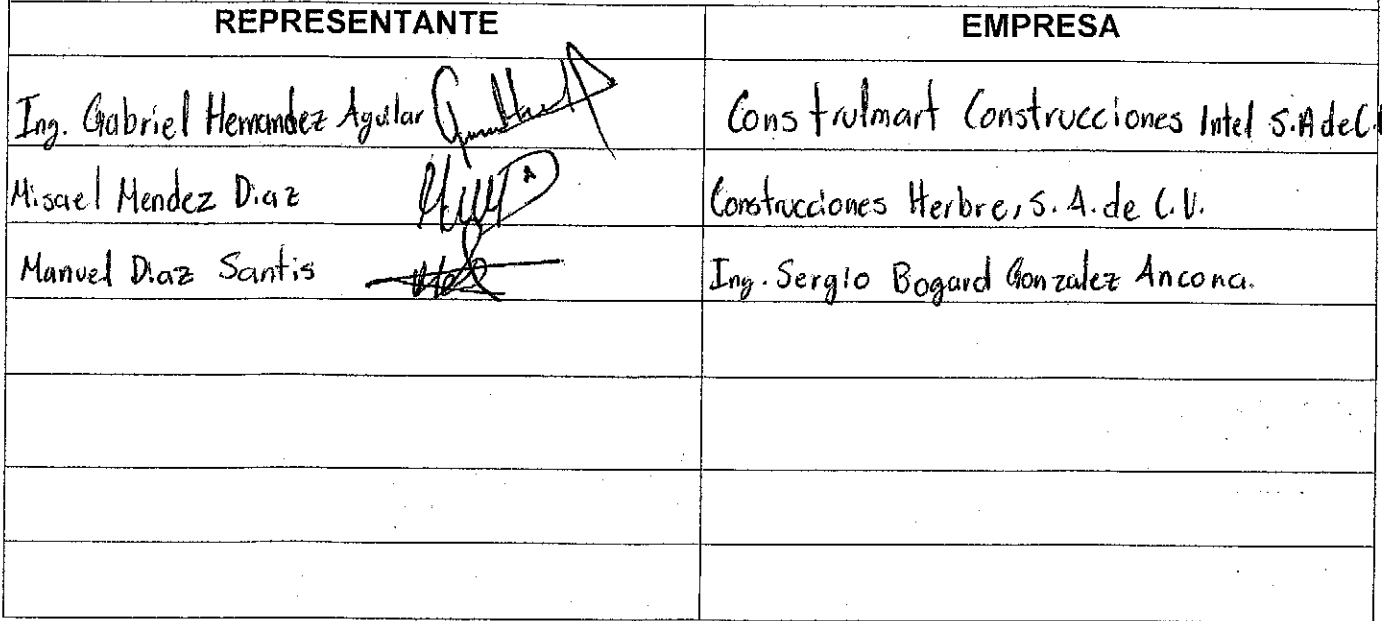 REPRESENTANTE EMPRESA
Ing. Gabriel Hernandez Aguilar Construlmart Construcciones Intel S.A de C.
Misael Mendez Diaz Construcciones Herbre, S.A. de C.V.
Manuel Diaz Santis Ing. Sergio Bogard Gonzalez Ancona.